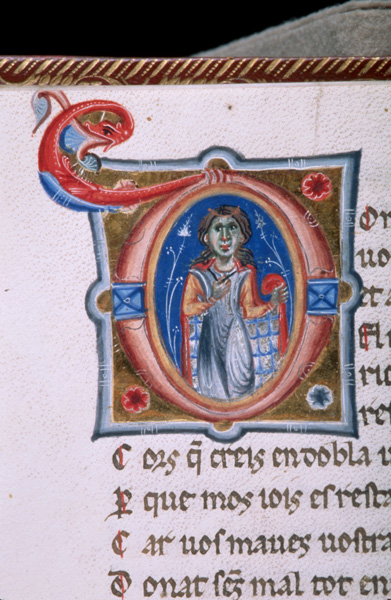 D
on
uo
et
Al
ric
ret
Cors q̃ creis en dobla
Per que mos uois es restr
Car uos mauez uostra
Donat seg̃z mal tot en